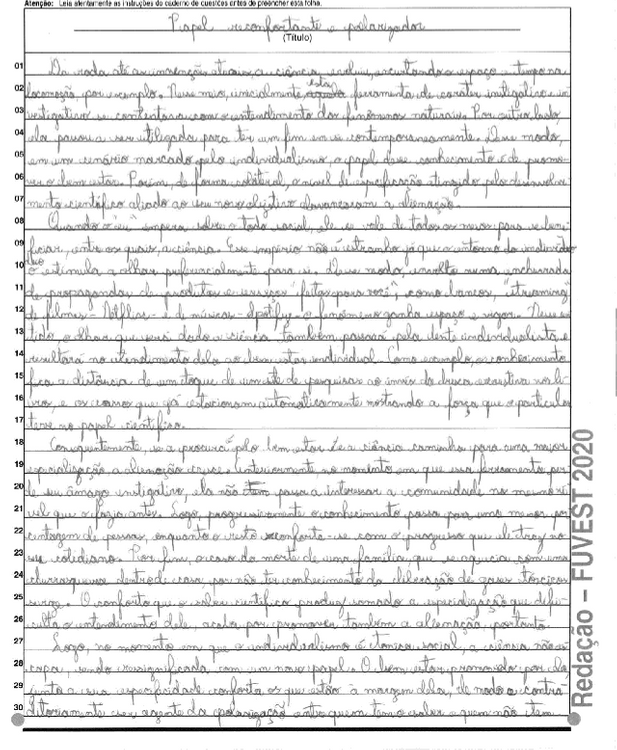 Atenção: Leia atentamente as instruções do caderno de questões antes de preencher esta folha.
Papel reconfortante e polarizador
(Título)
01 Da roda até as invenções atuais, a ciência evoluiu, encurtando espaço e tempo na
02 locomoção, por exemplo. Nesse meio, inicialmente, esta ferramenta de caráter instigativo e in-
03 vestigativo se contentava com o entendimento dos fenômenos naturais. Por outro lado,
04 ela passou a ser utilizada para ter um fim em si contemporaneamente. Desse modo,
05 em um cenário marcado pelo individualismo, o papel desse conhecimento é de promo-
06 ver o bem estar. Porém, de forma colateral, o nível de especificação atingido pelo desenvolvi-
07 mento científico aliado ao seu novo objetivo alavancaram a alienação.
08 Quando o "eu" impera sobre o todo social, ele se vale de todos os meios para se bene-
09 ficiar, entre os quais, a ciência. Esse império não é estranho já que o entorno do indivíduo
10 o estimula a olhar preferencialmente para si. Desse modo, envolto numa enxurrada
11 de propagandas de produtos e serviços "feitos para você", como bancos, "streaming"
12 de filmes - Netflix - e de músicas - Spotify - o fenômeno ganha espaço e vigor. Nesse sen-
13 tido, o olhar que será dado a ciência também passará pela lente individualista e
14 resultará no atendimento dela ao bem estar individual. Como exemplo, o conhecimento
15 fica a distância de um toque de um site de pesquisas ao invés da busca exaustiva nos li-
16 vros, e os carros que já estacionam automaticamente mostrando a força que o particular
17 teve no papel científico.
18 Consequentemente, se a procura é pelo bem estar e a ciência caminha para uma maior
19 especialização a alienação cresce. Anteriormente no momento em que essa ferramenta per-
20 de seu âmago instigativo, ela não passa a interessar a comunidade no mesmo ní-
21 vel que o fazia antes. Logo, progressivamente o conhecimento passa para uma menor por-
22 centagem de pessoas, enquanto o resto reconforta-se com o progresso que ele traz no
23 seu cotidiano. Por fim, o caso da morte de uma família que se aquecia com uma
24 churrasqueira dentro de casa por não ter conhecimento da liberação de gases tóxicos
25 surge. O conforto que o saber científico produz somado a especialização que difi-
26 culta o entendimento dele, acaba por promover também a alienação, portanto.
27 Logo, no momento em que o individualismo é tônica social, a ciência não e-
28 scapa, sendo ressignificada com um novo papel. O bem estar promovido por ela
29 junto a sua especificidade conforta os que estão à margem dela, de modo a contra-
30 ditoriamente ser agente da polarização entre quem tem o saber e quem não tem
Redação – FUVEST 2020